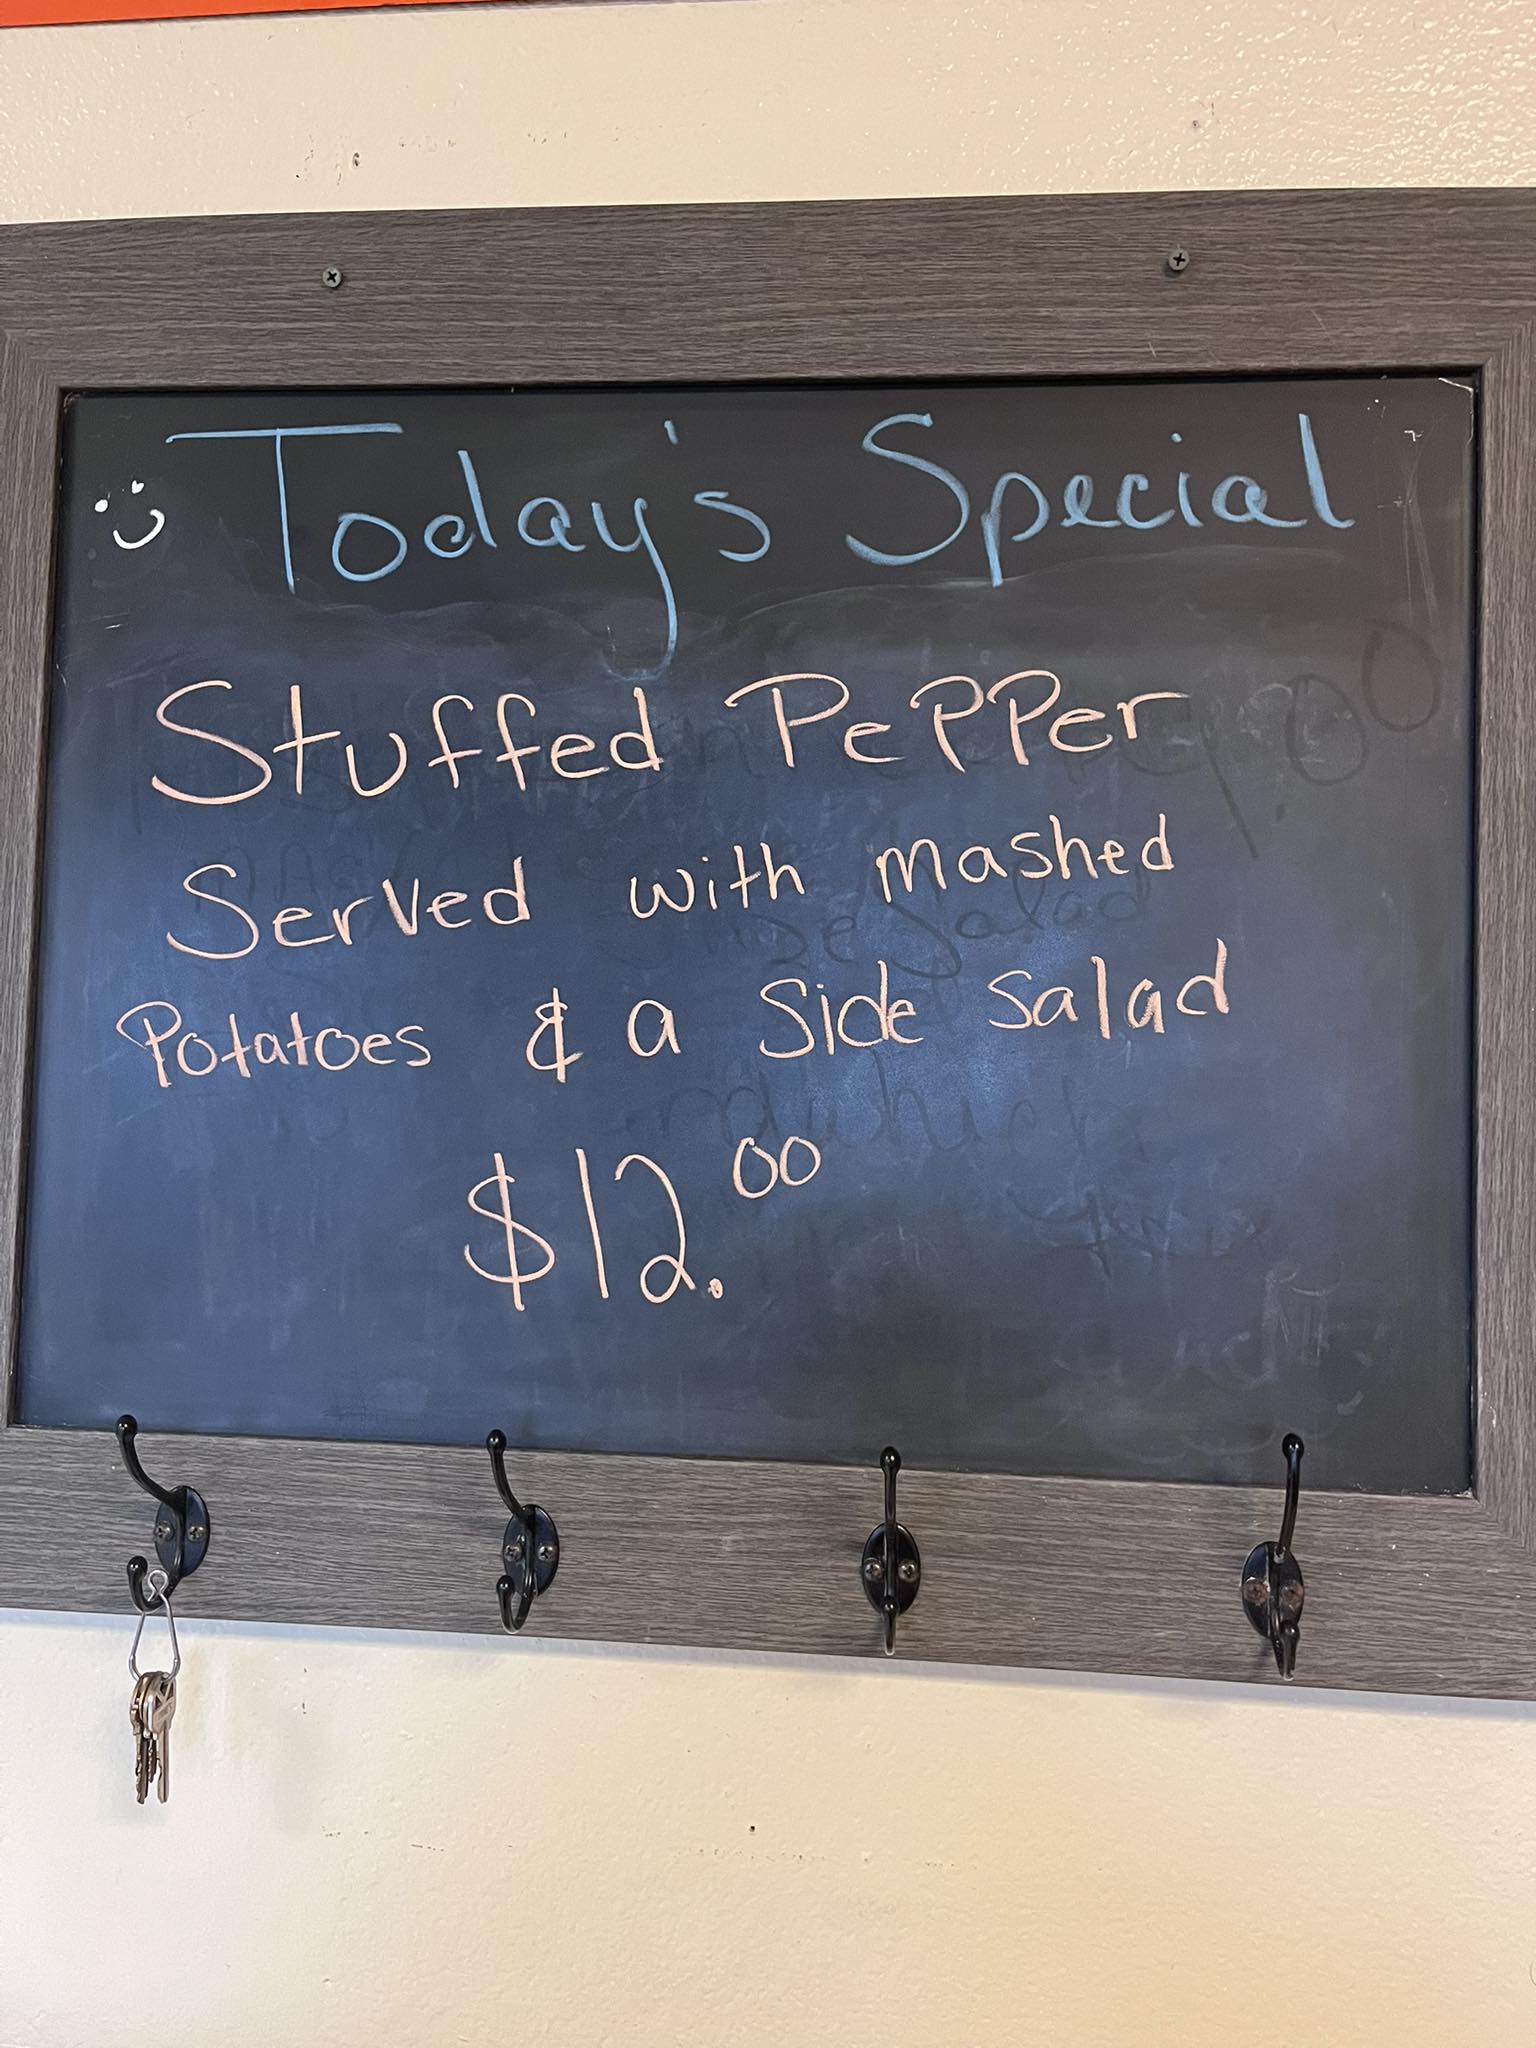 Today's Special
Stuffed Pepper
Served with mashed
Potatoes & a Side Salad
$12.00